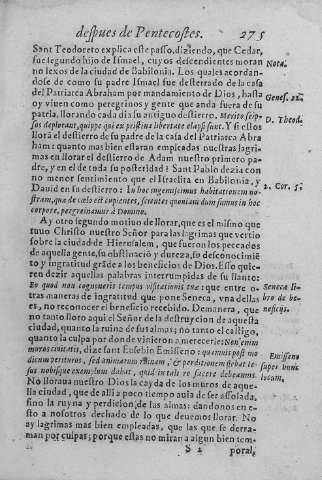 despues de Pentecostes. 275
Sant Teodoreto explica este passo, diziendo, que Cedar,
fue segundo hijo de Ismael, cuyos descendientes moran
Nota.
no lexos de la ciudad de Babilonia. Los quales acordan-
dose de como su padre Ismael fue desterrado de la casa
del Patriarca Abraham por mandamiento de Dios, hasta
Genes. 21.
oy viuen como peregrinos y gente que anda fuera de su
patria, llorando cada dia su antiguo destierro. Merito seip-
D. Theod.
sos deplorant, quippe qui ex pristina libertate elapsi sunt. Y si estos
llorã el destierro de su padre de la casa del Patriarca Abra
ham: quanto mas bien estaran empleadas nuestras lagri-
mas en llorar el destierro de Adam nuestro primero pa-
dre, y en el de toda su posteridad? Sant Pablo dezia con
no menor sentimiento que el Israelita en Babilonia, y
Dauid en su destierro: In hoc ingemiscimus habitationem no-
2. Cor. 5.
stram, quæ de cælo est cupientes, scientes quoniam dum sumus in hoc
corpore, peregrinamur à Domino.
Ay otro segundo motiuo de llorar, que es el mismo que
tuuo Christo nuestro Señor para las lagrimas que vertio
sobre la ciudad de Hierusalem, que fueron los peccados
de aquella gente, su obstinacio y dureza, su desconocimiẽ
to y ingratitud grãde a los beneficios de Dios. Esso quie-
ren dezir aquellas palabras interrumpidas de su llanto:
Eo quod non cognoueris tempus visitationis tuæ: que entre o-
Seneca li-
tras maneras de ingratitud que pone Seneca, vna dellas
bro de be-
es, no reconocer el beneficio recebido. De manera, que
neficijs.
no tanto lloro aqui el Señor de la destruycion de aquesta
ciudad, quanto la ruina de sus almas; no tanto el castigo,
quanto la culpa por donde vinieron a merecerle: Non enim
muros ciuitatis, dize sant Eusebio Emisseno: quamuis post mo
Emisseno
dicum perituros, sed animarum ruinam, & perditionem flebat to-
super huns
tus nobisque exemplum dabat, quid in tali re facere debeamus.
locum.
No lloraua nuestro Dios la cayda de los muros de aque-
lla ciudad, que de alli a poco tiempo auia de ser assolada,
sino la ruyna y perdicion de las almas: dandonos en es-
to a nosotros dechado de lo que deuemos llorar. No
ay lagrimas mas bien empleadas, que las que se derra-
man por culpas; porque estas no miran a algun bien tem-
S 2 poral,